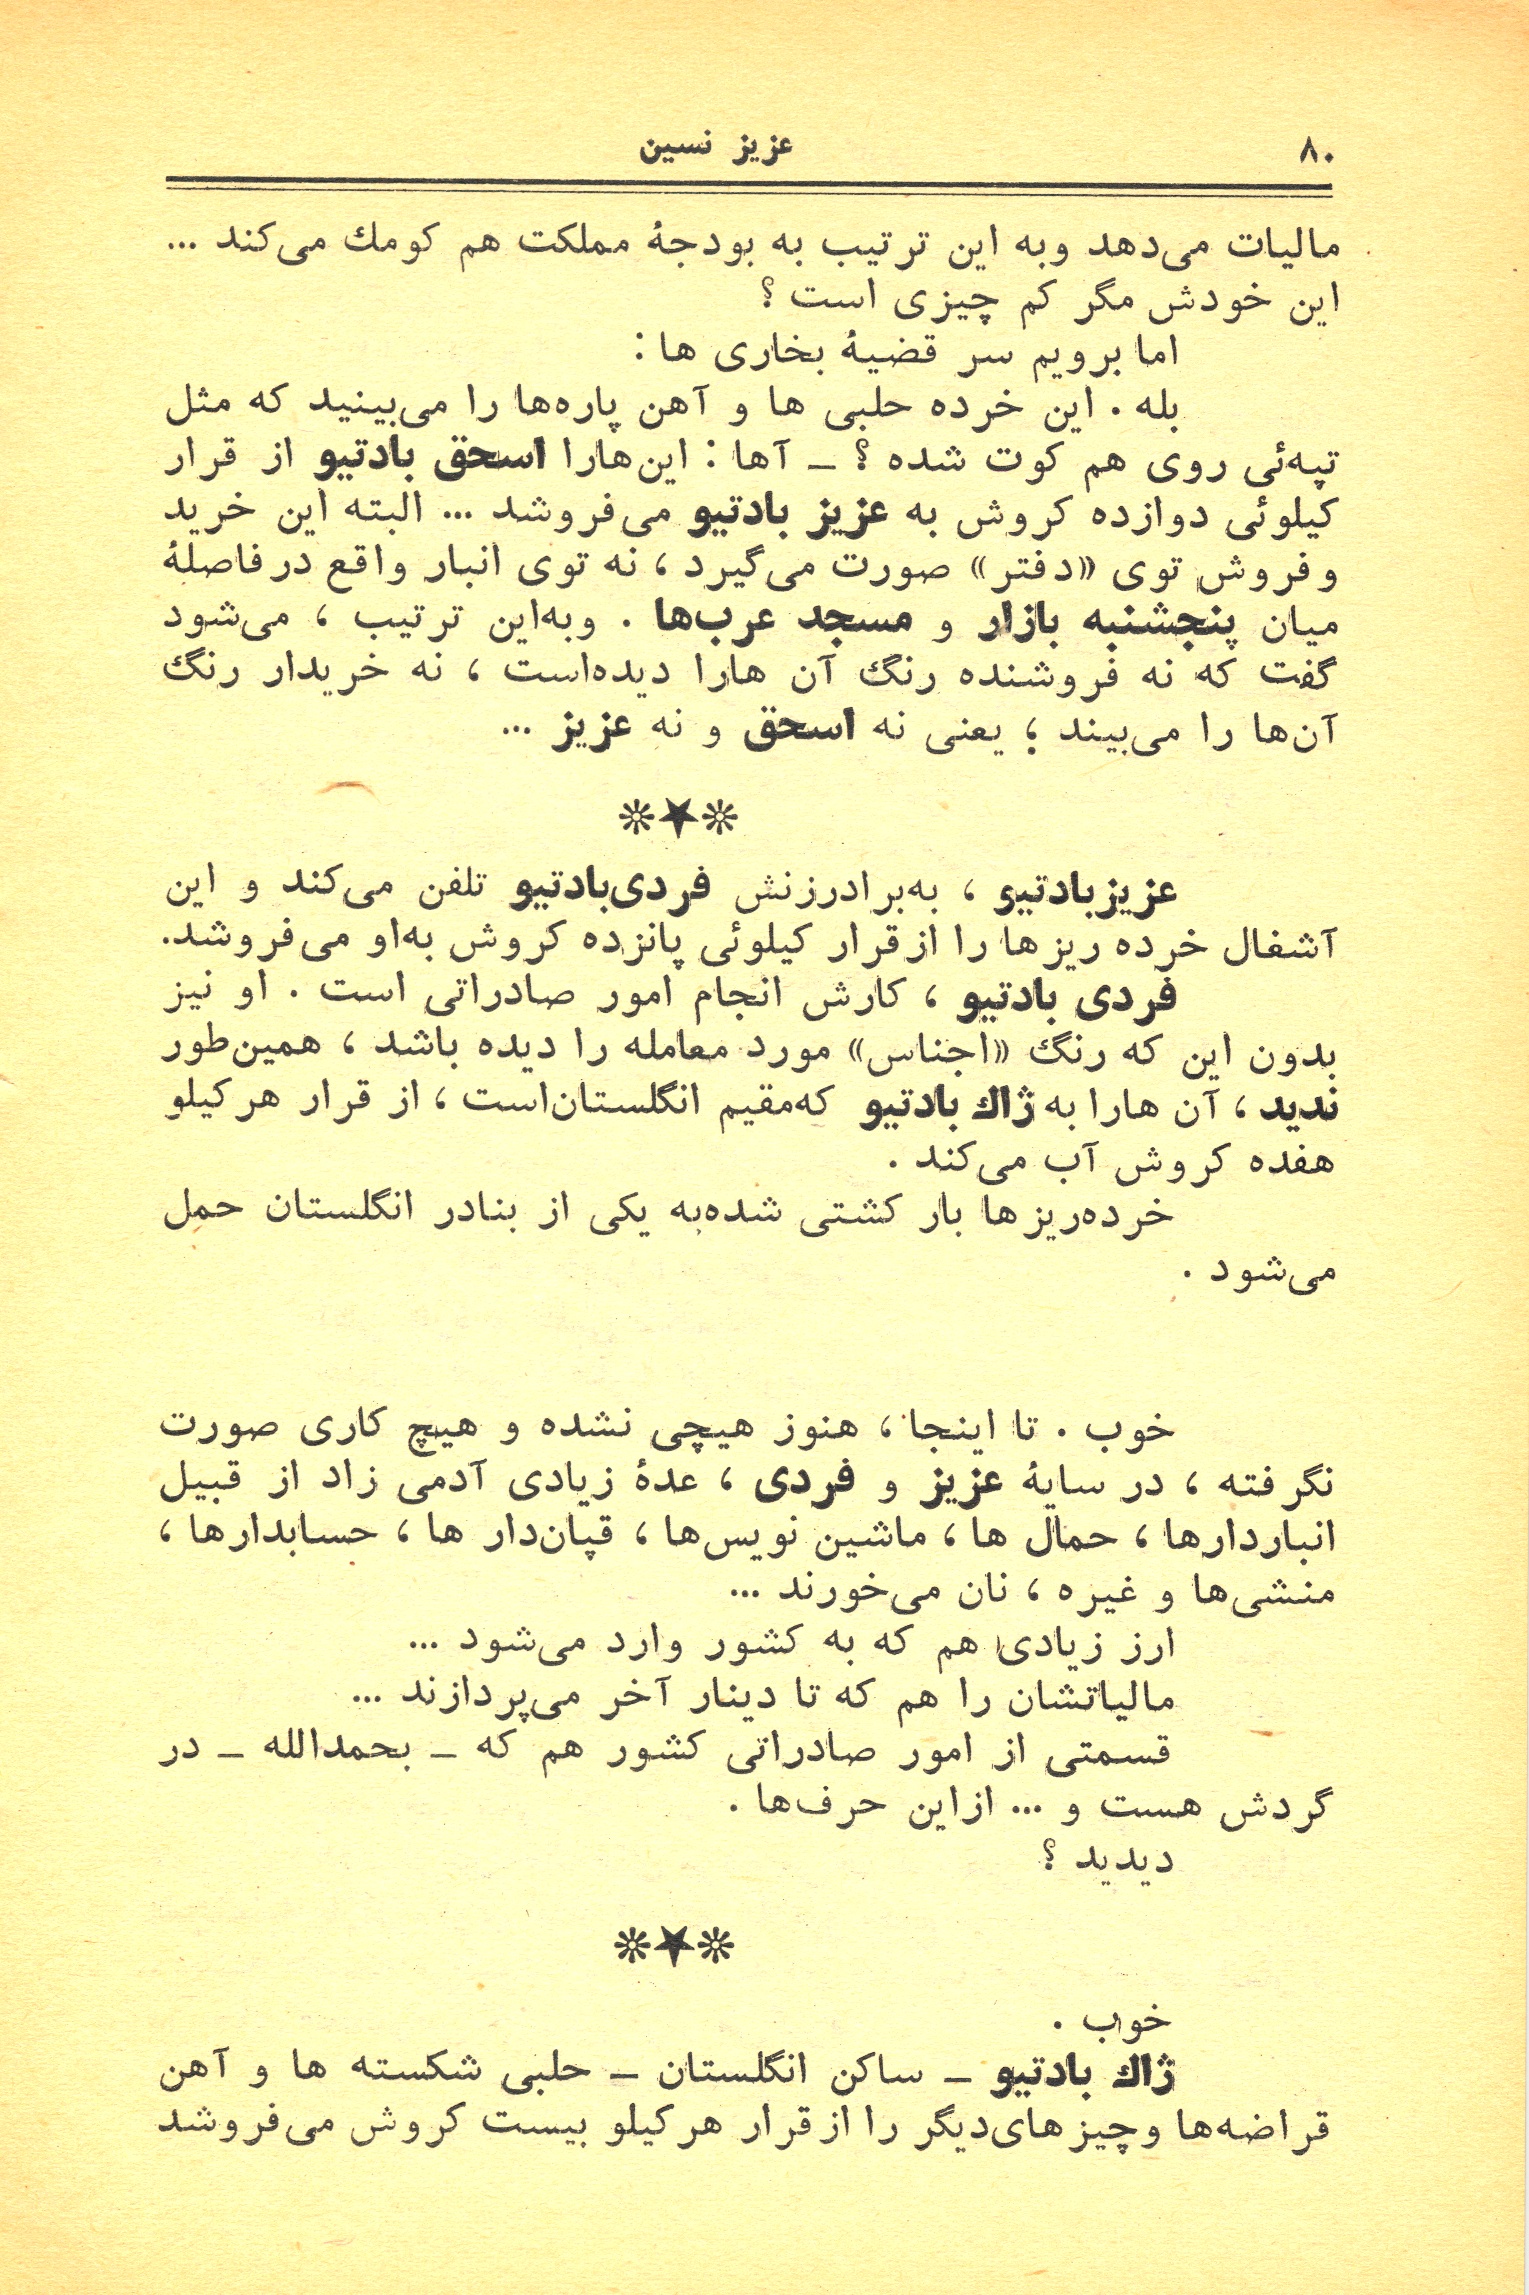 ۸۰
عزیز نسین
مالیات می‌دهد وبه این ترتیب به بودجهٔ مملکت هم کومك می‌کند ...
این خودش مگر کم چیزی است ؟
اما برویم سر قضیهٔ بخاری ها :
بله . این خرده حلبی ها و آهن پاره‌ها را می‌بینید که مثل
تپه‌ئی روی هم کوت شده ؟ ــ آها : این‌هارا اسحق بادتیو از قرار
کیلوئی دوازده کروش به عزیز بادتیو می‌فروشد ... البته این خرید
و فروش توی «دفتر» صورت می‌گیرد ، نه توی انبار واقع درفاصلهٔ
میان پنجشنبه بازار و مسجد عرب‌ها . وبه‌این ترتیب ، می‌شود
گفت که نه فروشنده رنگ آن هارا دیده‌است ، نه خریدار رنگ
آن‌ها را می‌بیند ؛ یعنی نه اسحق و نه عزیز ...
❊★❊
عزیزبادتیو ، به‌برادرزنش فردی‌بادتیو تلفن می‌کند و این
آشغال خرده ریزها را ازقرار کیلوئی پانزده کروش به‌او می‌فروشد.
فردی بادتیو ، کارش انجام امور صادراتی است . او نیز
بدون این که رنگ «اجناس» مورد معامله را دیده باشد ، همین‌طور
ندید ، آن هارا به ژاك بادتیو که‌مقیم انگلستان‌است ، از قرار هرکیلو
هفده کروش آب می‌کند .
خرده‌ریزها بار کشتی شده‌به یکی از بنادر انگلستان حمل
می‌شود .
خوب . تا اینجا ، هنوز هیچی نشده و هیچ کاری صورت
نگرفته ، در سایهٔ عزیز و فردی ، عدهٔ زیادی آدمی زاد از قبیل
انباردارها ، حمال ها ، ماشین نویس‌ها ، قپان‌دار ها ، حسابدارها ،
منشی‌ها و غیره ، نان می‌خورند ...
ارز زیادی هم که به کشور وارد می‌شود ...
مالیاتشان را هم که تا دینار آخر می‌پردازند ...
قسمتی از امور صادراتی کشور هم که ــ بحمدالله ــ در
گردش هست و ... ازاین حرف‌ها .
دیدید ؟
❊★❊
خوب .
ژاك بادتیو ــ ساکن انگلستان ــ حلبی شکسته ها و آهن
قراضه‌ها وچیزهای‌دیگر را ازقرار هرکیلو بیست کروش می‌فروشد